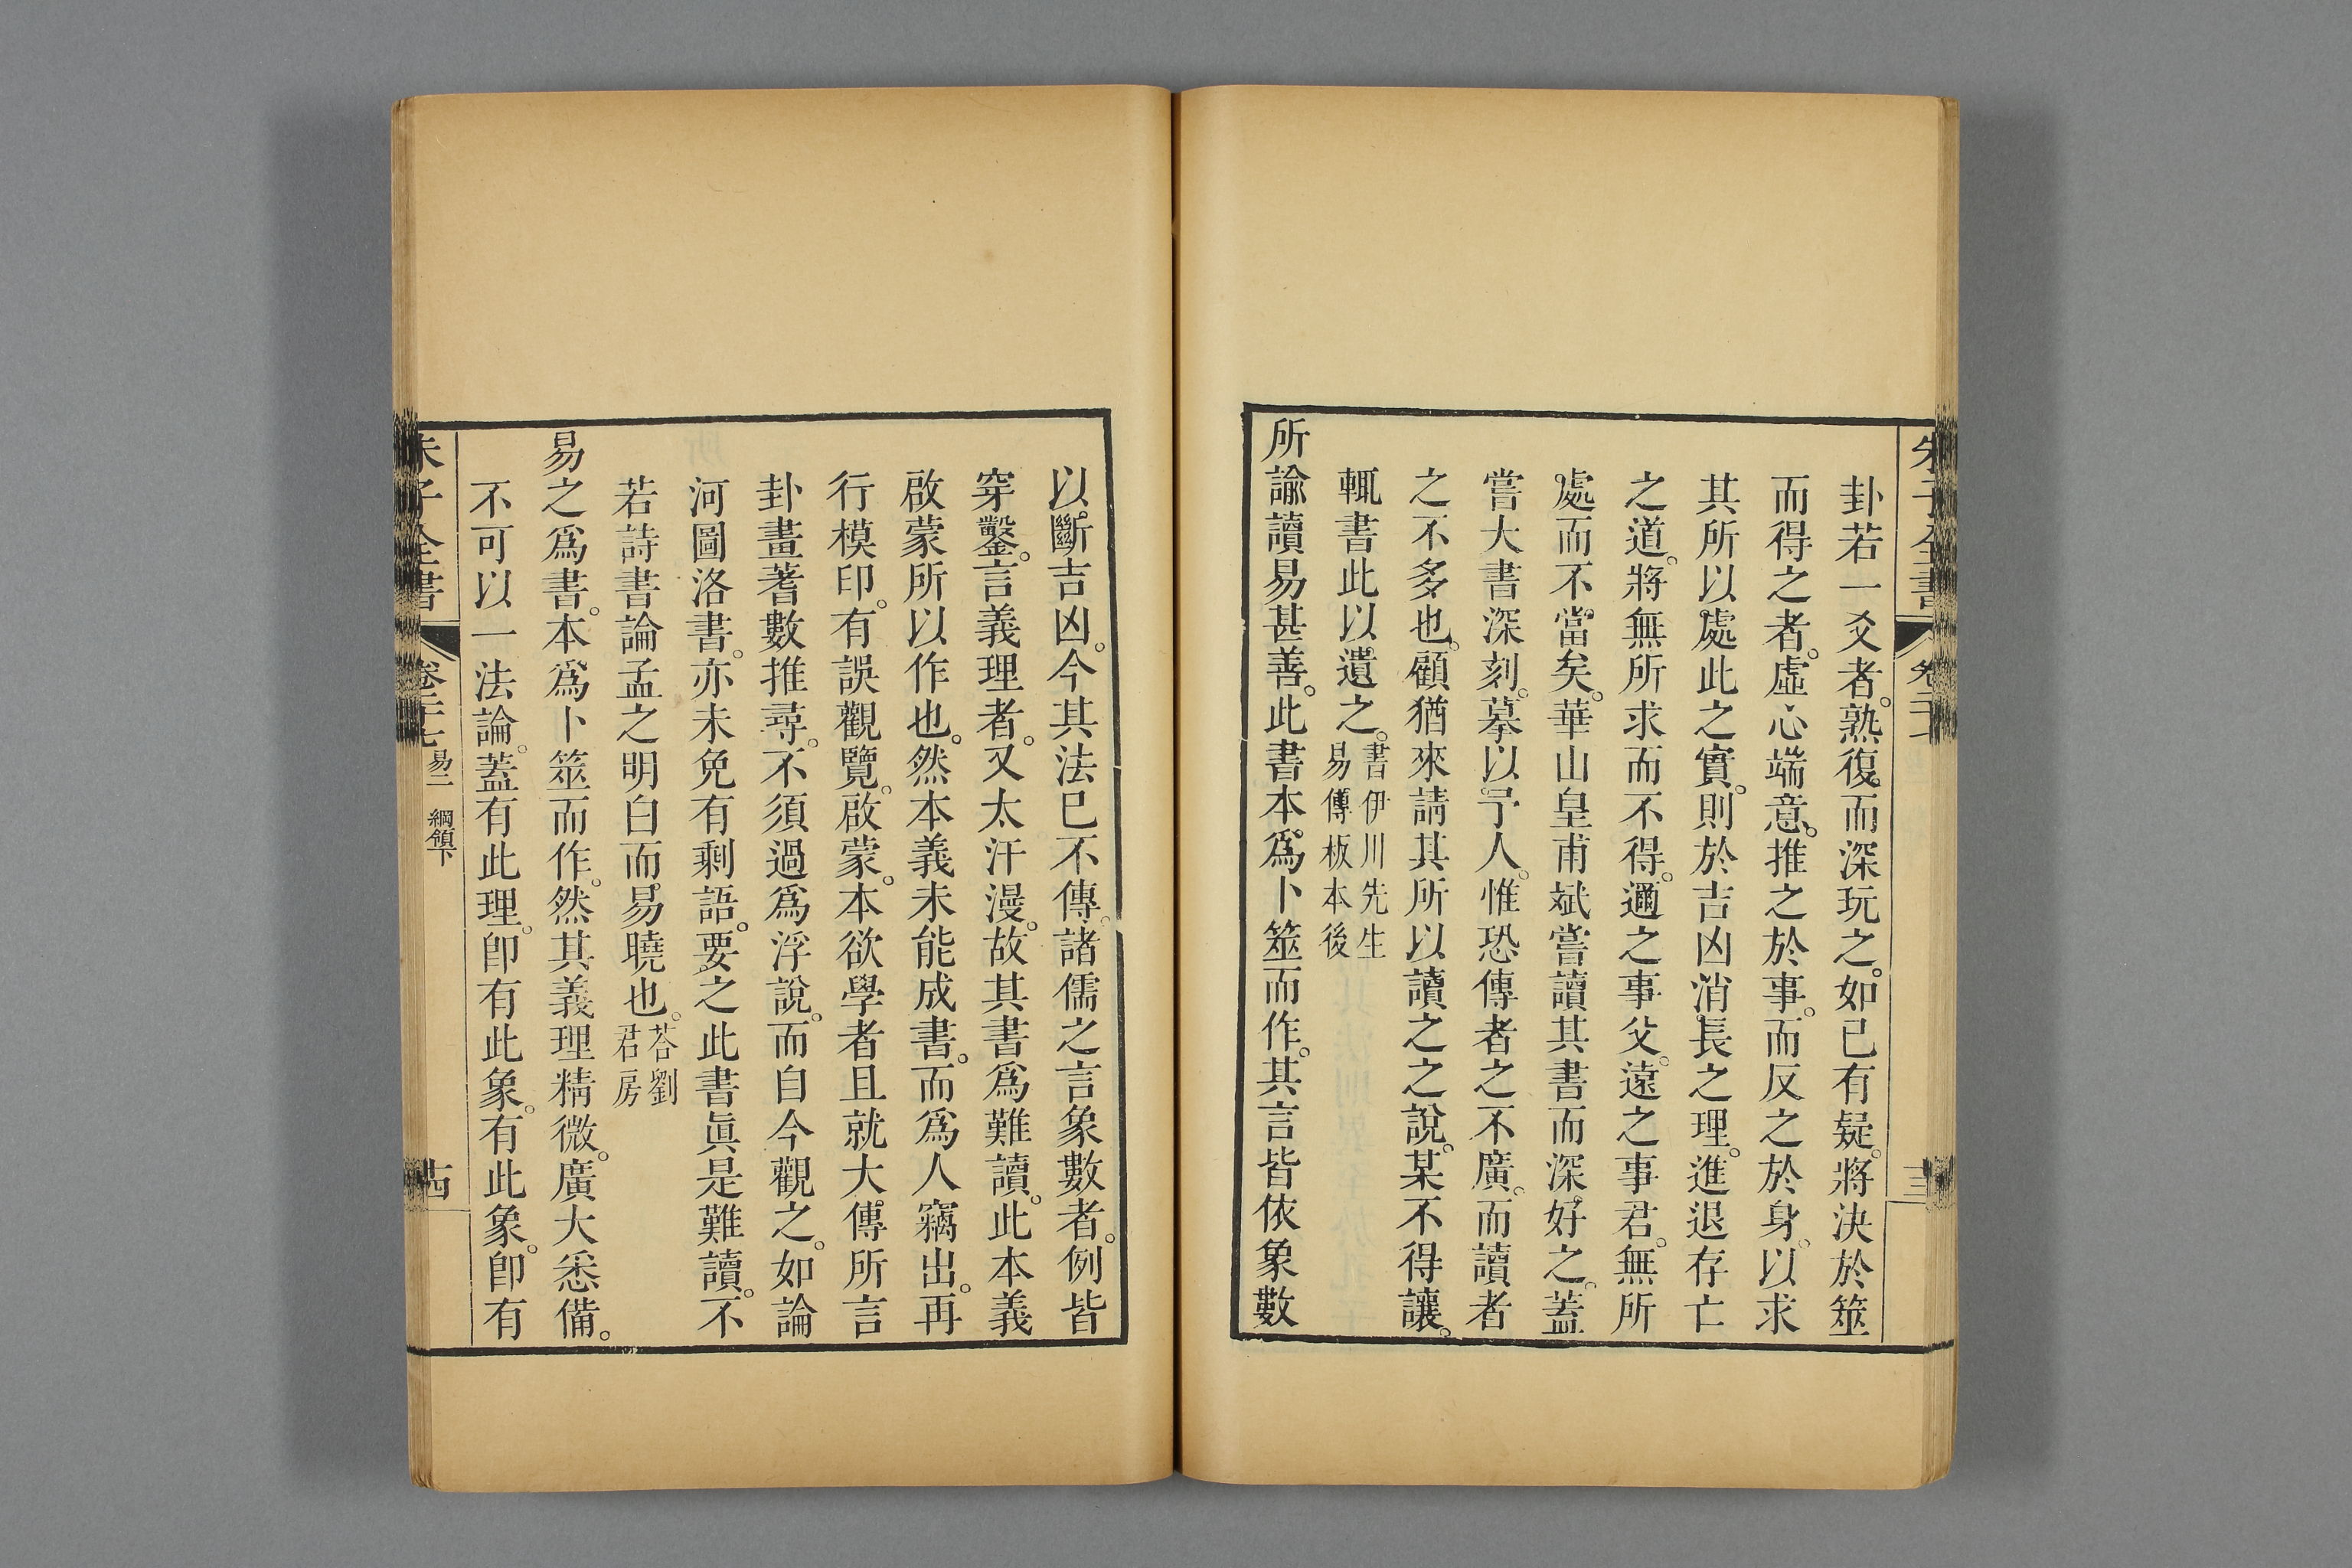 卦若一爻者。熟復而深玩之。如已有疑。將決於筮
而得之者。虛心端意。推之於事。而反之於身。以求
其所以處此之實。則於吉凶消長之理。進退存亡
之道。將無所求而不得。邇之事父。遠之事君。無所
處而不當矣。華山皇甫斌嘗讀其書而深好之。蓋
嘗大書深刻。摹以予人。惟恐傳者之不廣。而讀者
之不多也。顧猶來請其所以讀之之說。某不得讓。
輒書此以遺之。書伊川先生易傳板本後
所諭讀易甚善。此書本爲卜筮而作。其言皆依象數
以斷吉凶。今其法已不傳。諸儒之言象數者。例皆
穿鑿。言義理者。又太汗漫。故其書爲難讀。此本義
啟蒙所以作也。然本義未能成書。而爲人竊出。再
行模印。有誤觀覽。啟蒙。本欲學者且就大傳所言
卦畫蓍數推尋。不須過爲浮說。而自今觀之。如論
河圖洛書。亦未免有剩語。要之此書眞是難讀。不
若詩書論孟之明白而易曉也。荅劉君房
易之爲書。本爲卜筮而作。然其義理精微。廣大悉備。
不可以一法論。蓋有此理。卽有此象。有此象。卽有
朱子全書
卷二十七
易二 綱領下
十四